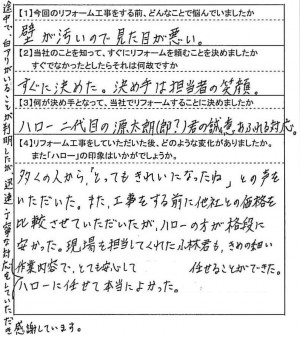 【1】今回のリフォーム工事をする前、どんなことで悩んでいましたか
壁が汚いので見た目が悪い。
【2】当社のことを知って、すぐにリフォームを頼むことを決めましたか
すぐでなかったとしたらそれは何故ですか
すぐに決めた。決め手は担当者の笑顔。
【3】何が決め手となって、当社でリフォームすることに決めましたか
ハロー二代目の源太郎(郎?)君の誠意あふれる対応。
【4】リフォーム工事をしていただいた後、どのような変化がありましたか。
また「ハロー」の印象はいかがでしょうか。
多くの人から「とってもきれいになったね」との声を
いただいた。また、工事をする前に他社との価格を
比較させていただいたが、ハローの方が格段に
安かった。現場を担当してくれた小林君も、きめの細い
作業内容で、とても安心して 任せることができた。
ハローに任せて本当によかった。
途中で、白アリがいることが判明したが、迅速、丁寧な対応をしていただき
感謝しています。